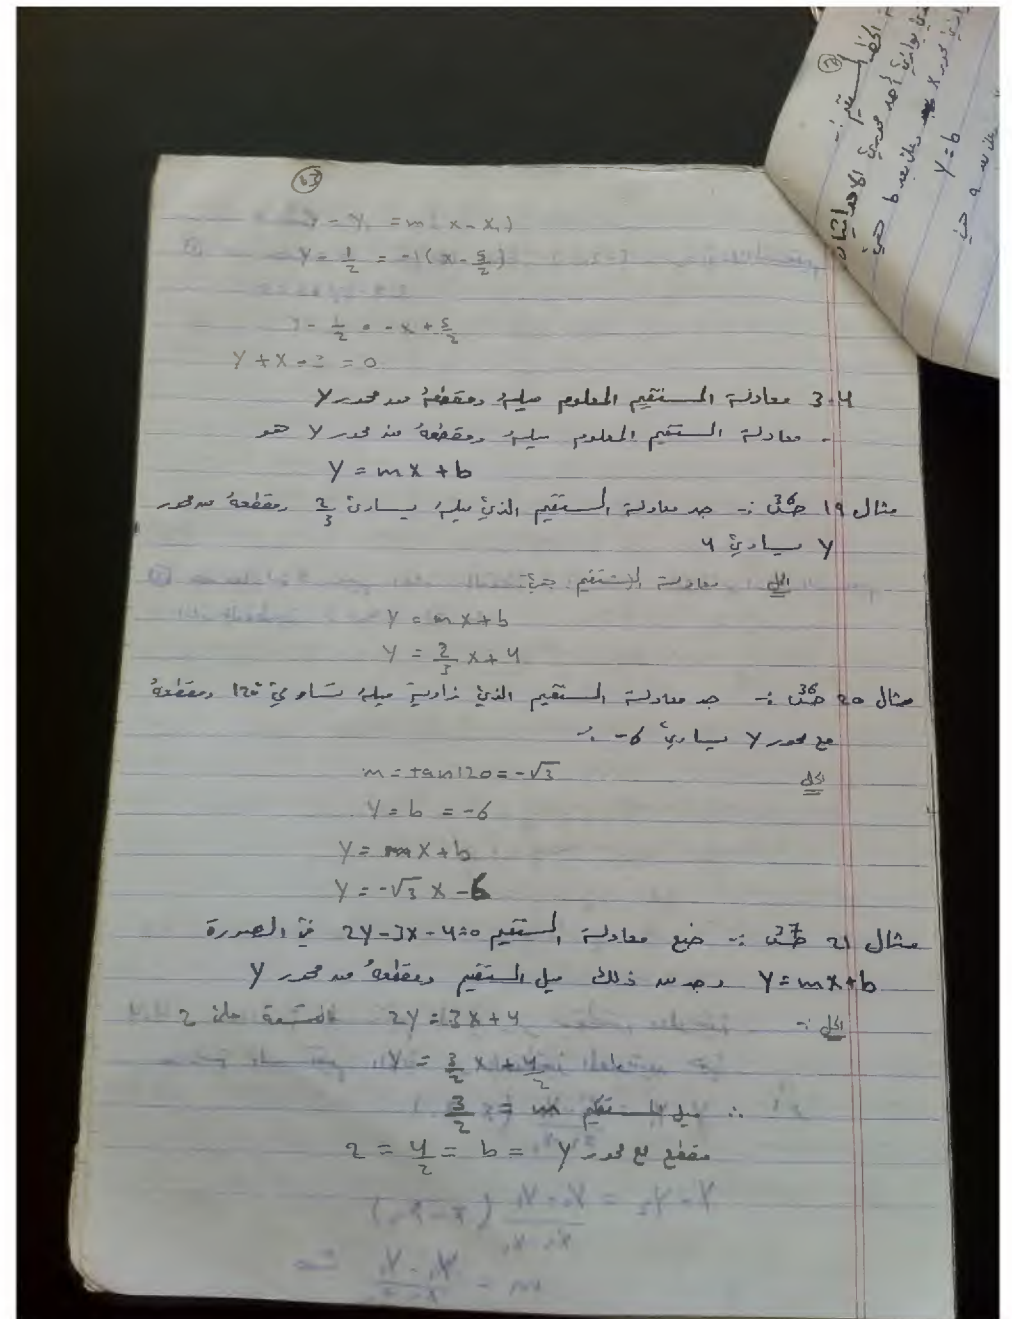 y - y₁ = m(x - x₁)
y - 1/2 = -1(x - 5/2)
y - 1/2 = -x + 5/2
y + x - 3 = 0
3.4 معادلة المستقيم المعلوم ميله ومقطعه من محور y
- معادلة المستقيم المعلوم ميله ومقطعه من محور y هو
y = mx + b
مثال 19 ص36 :- جد معادلة المستقيم الذي ميله يساوي 2/3 ومقطعه من محور
y يساوي 4
الحل معادلة المستقيم هي:
y = mx + b
y = 2/3 x + 4
مثال 20 ص36 :- جد معادلة المستقيم الذي زاوية ميله تساوي 120° ومقطعه
مع محور y يساوي -6 :-
الحل
m = tan120 = -√3
y = b = -6
y = mx + b
y = -√3 x - 6
مثال 21 ص37 :- ضع معادلة المستقيم 2y - 3x - 4 = 0 في الصورة
y = mx + b وجد من ذلك ميل المستقيم ومقطعه من محور y
الحل :- 2y = 3x + 4 القسمة على 2
y = 3/2 x + 4/2
∴ ميل المستقيم m = 3/2
مقطع مع محور y = b = 4/2 = 2
الخط المستقيم :-
أحد محوري الاحداثيات
b هي
y = b